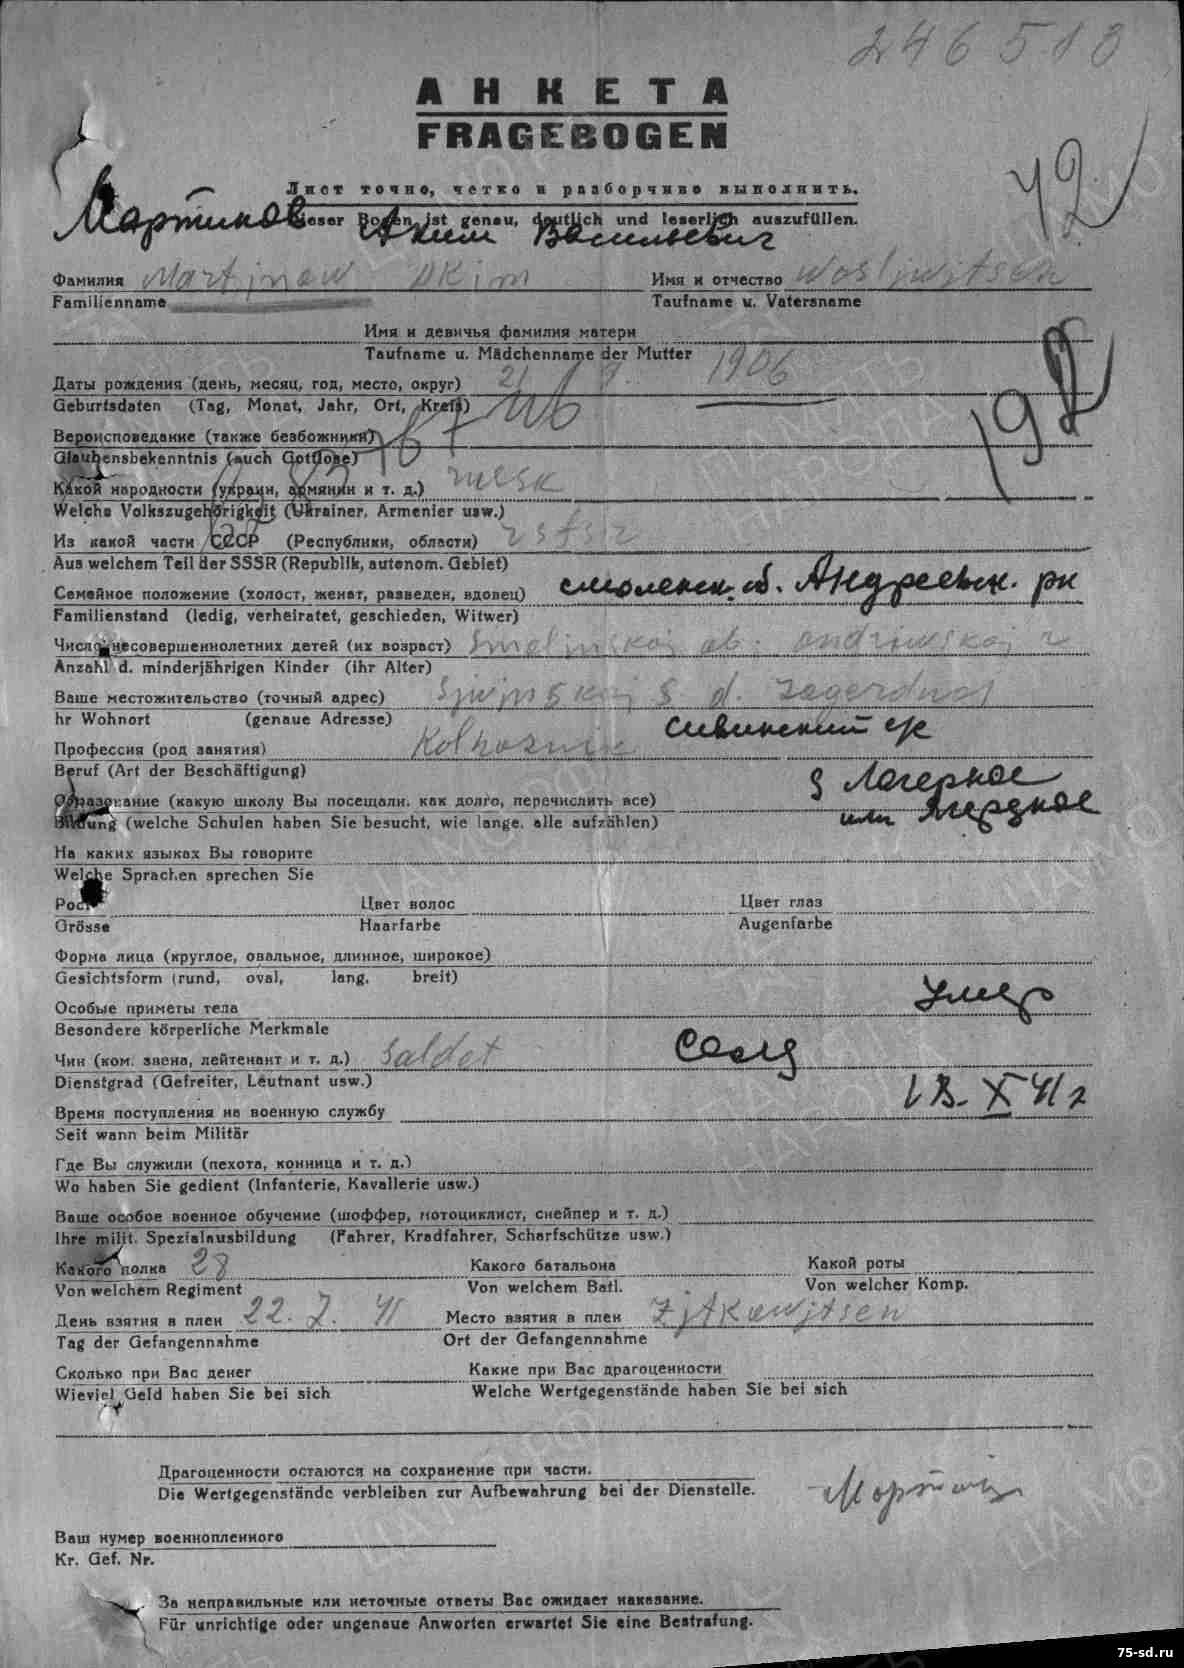 246513
АНКЕТА
FRAGEBOGEN
42
Лист точно, четко и разборчиво выполнить.
Dieser Bogen ist genau, deutlich und leserlich auszufüllen.
Мартинов Аким Васильевич
Фамилия Martinow Akim Имя и отчество Wosljwjtsch
Familienname Taufname u. Vatersname
Имя и девичья фамилия матери
Taufname u. Mädchenname der Mutter
192
Даты рождения (день, месяц, год, место, округ) 1906
Geburtsdaten (Tag, Monat, Jahr, Ort, Kreis)
Вероисповедание (также безбожники)
Glaubensbekenntnis (auch Gottlose)
Какой народности (украин, армянин и т. д.)
Welche Volkszugehörigkeit (Ukrainer, Armenier usw.)
Из какой части СССР (Республики, области) rsfsr
Aus welchem Teil der SSSR (Republik, autonom. Gebiet)
Семейное положение (холост, женат, разведен, вдовец) смоленск. об. Андреевск. рн
Familienstand (ledig, verheiratet, geschieden, Witwer)
Число несовершеннолетних детей (их возраст) Smolinskoj ob. andriwskoj r
Anzahl d. minderjährigen Kinder (ihr Alter)
Ваше местожительство (точный адрес)
hr Wohnort (genaue Adresse)
Сивинский с/с
Профессия (род занятия) Kolhosnik
Beruf (Art der Beschäftigung)
Лагерное
Образование (какую школу Вы посещали, как долго, перечислить все) или
Bildung (welche Schulen haben Sie besucht, wie lange, alle aufzählen)
На каких языках Вы говорите
Welche Sprachen sprechen Sie
Рост Цвет волос Цвет глаз
Grösse Haarfarbe Augenfarbe
Форма лица (круглое, овальное, длинное, широкое)
Gesichtsform (rund, oval, lang, breit)
Особые приметы тела Умер
Besondere körperliche Merkmale
Чин (ком. звена, лейтенант и т. д.) Saldat Солд
Dienstgrad (Gefreiter, Leutnant usw.)
Время поступления на военную службу X 41 г
Seit wann beim Militär
Где Вы служили (пехота, конница и т. д.)
Wo haben Sie gedient (Infanterie, Kavallerie usw.)
Ваше особое военное обучение (шоффер, мотоциклист, снейпер и т. д.)
Ihre milit. Spezialausbildung (Fahrer, Kradfahrer, Scharfschütze usw.)
Какого полка 28 Какого батальона Какой роты
Von welchem Regiment Von welchem Batl. Von welcher Komp.
День взятия в плен 22. 7. 41 Место взятия в плен Zjtkawjtsen
Tag der Gefangennahme Ort der Gefangennahme
Сколько при Вас денег Какие при Вас драгоценности
Wieviel Geld haben Sie bei sich Welche Wertgegenstände haben Sie bei sich
Драгоценности остаются на сохранение при части.
Die Wertgegenstände verbleiben zur Aufbewahrung bei der Dienstelle.
Ваш нумер военнопленного
Kr. Gef. Nr.
За неправильные или неточные ответы Вас ожидает наказание.
Für unrichtige oder ungenaue Anworten erwartet Sie eine Bestrafung.
75-sd.ru